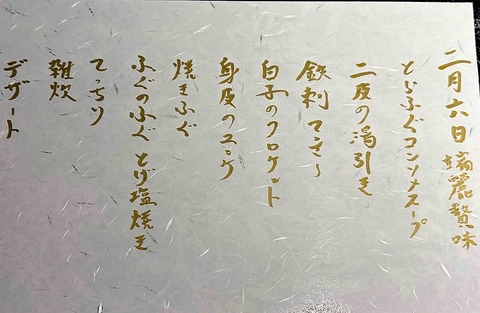 二月六日 端麗贅味
とらふぐコンソメスープ
二皮の湯引き
鉄刺 てっさ
白子のクロケット
身皮のユッケ
焼きふぐ
ふぐのふぐ とげ塩焼き
てっちり
雑炊
デザート